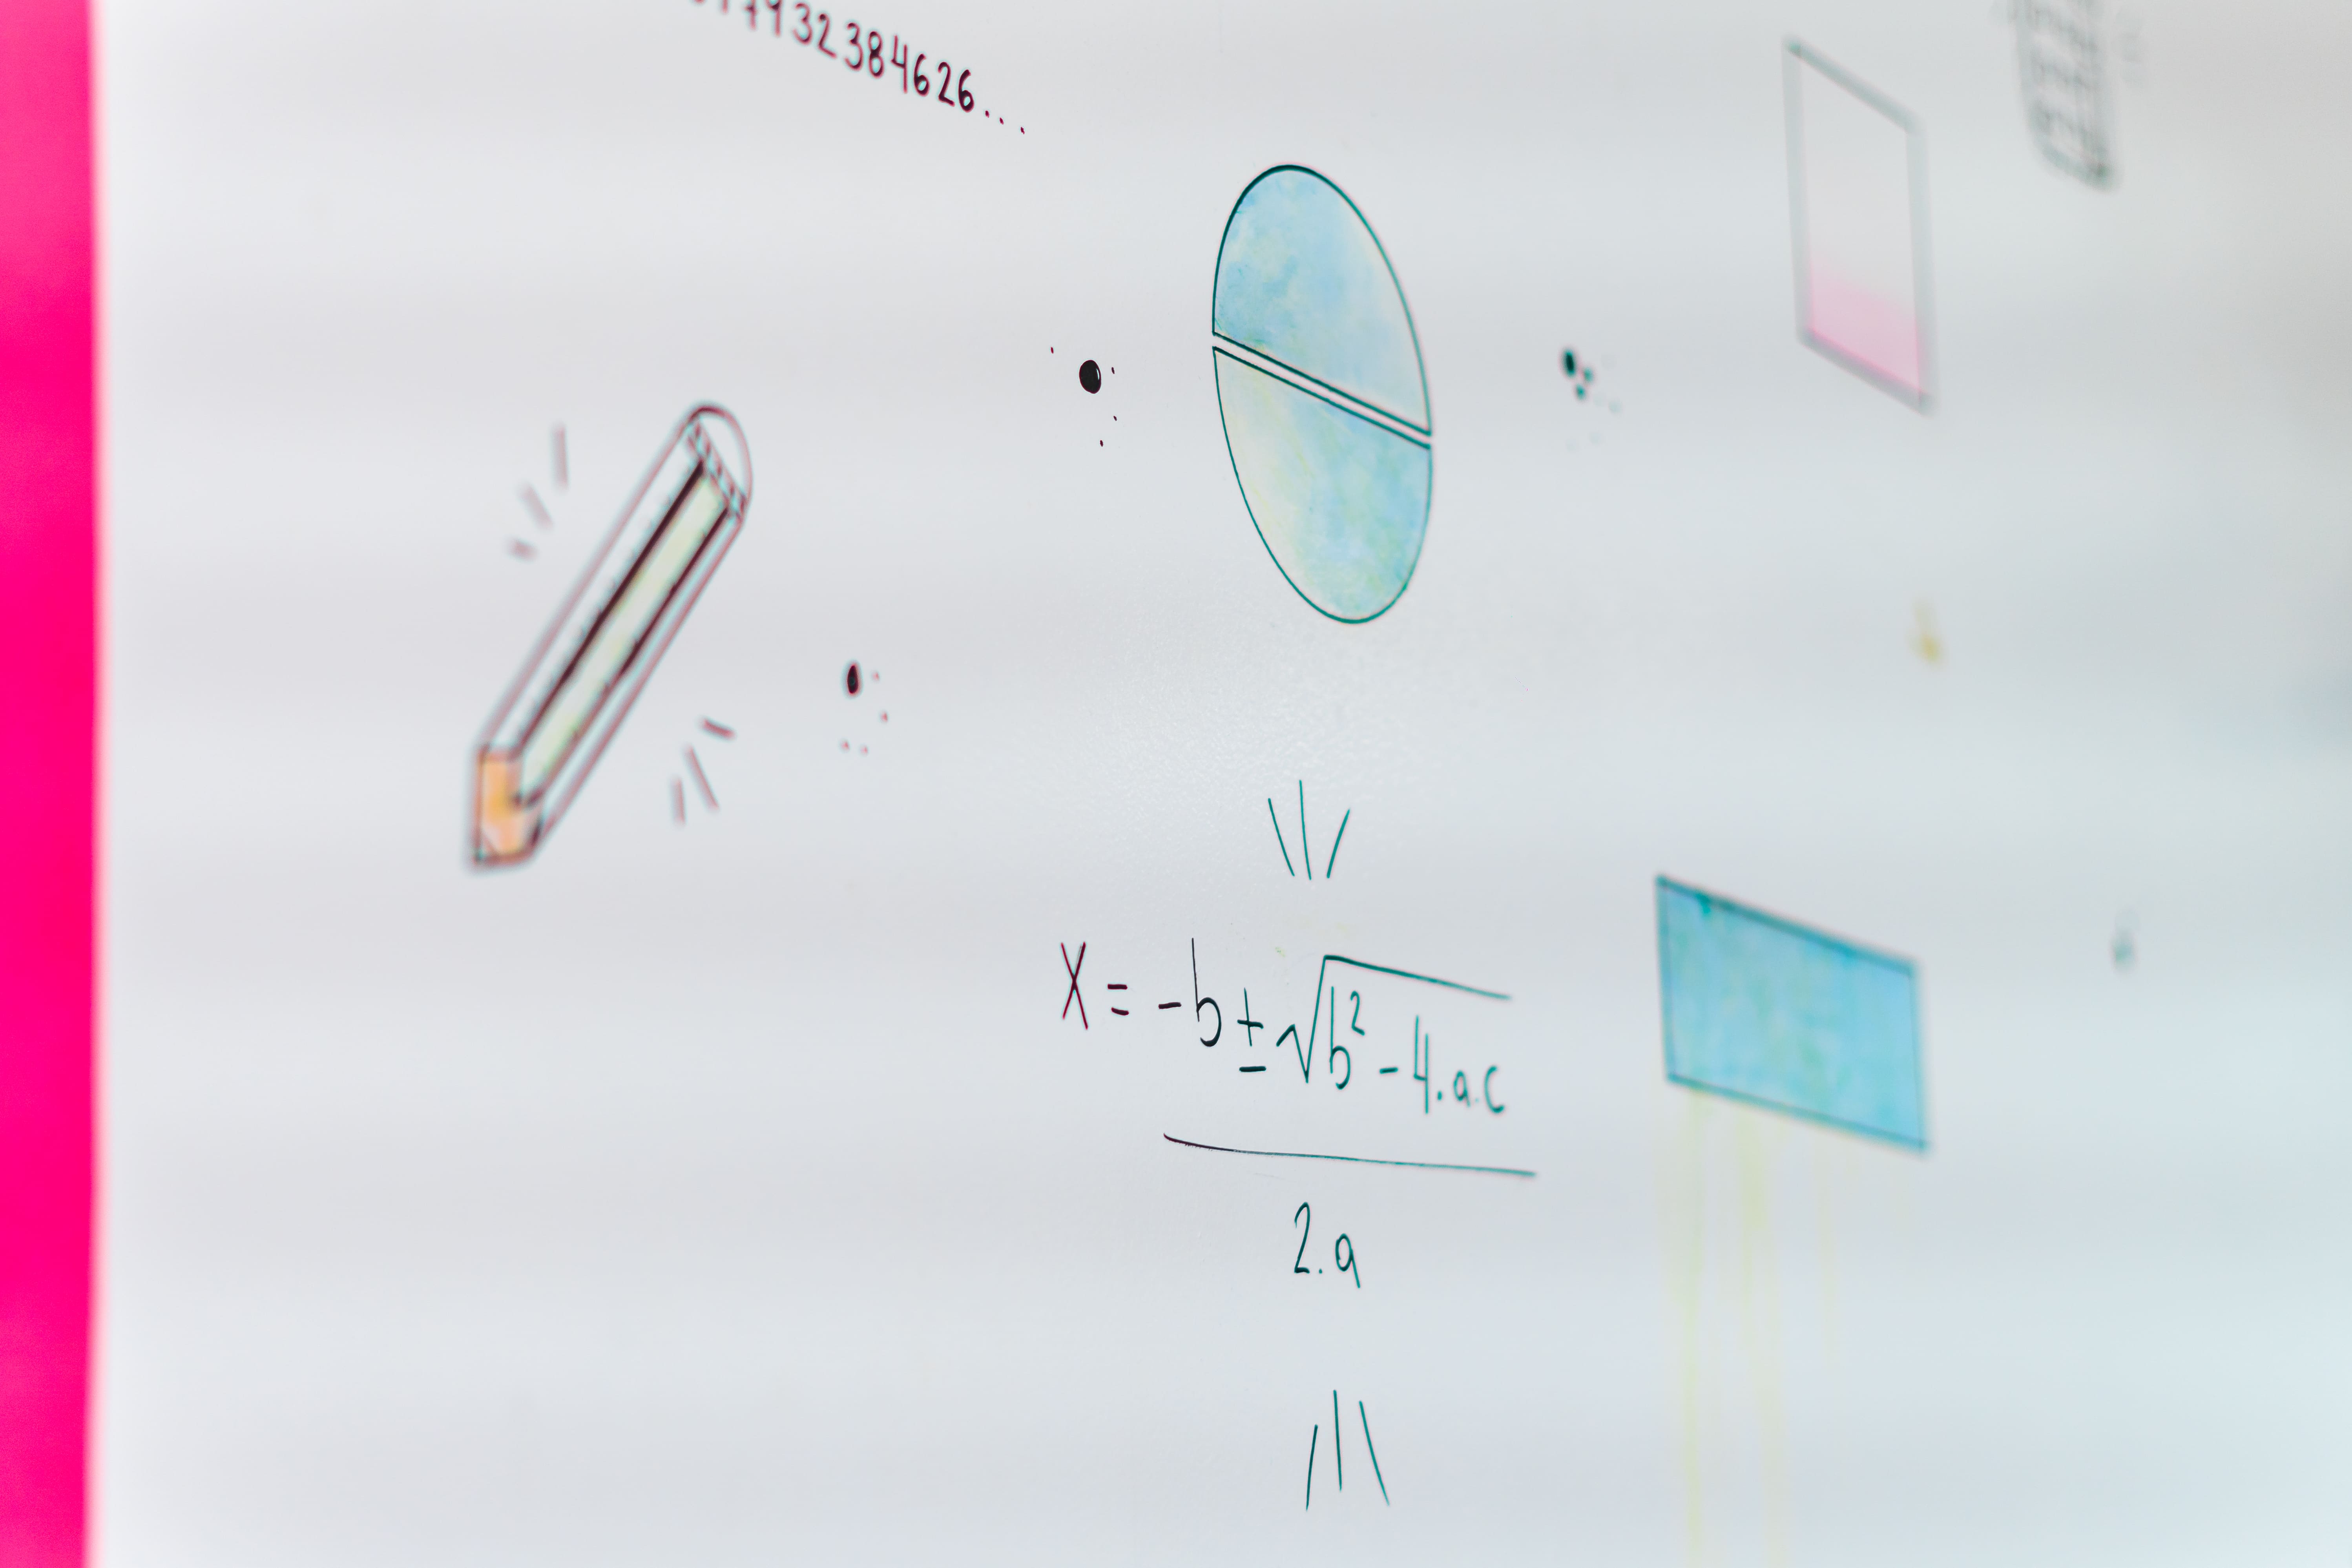 7932384626...
X = -b ± √b² - 4.a.c
2.a